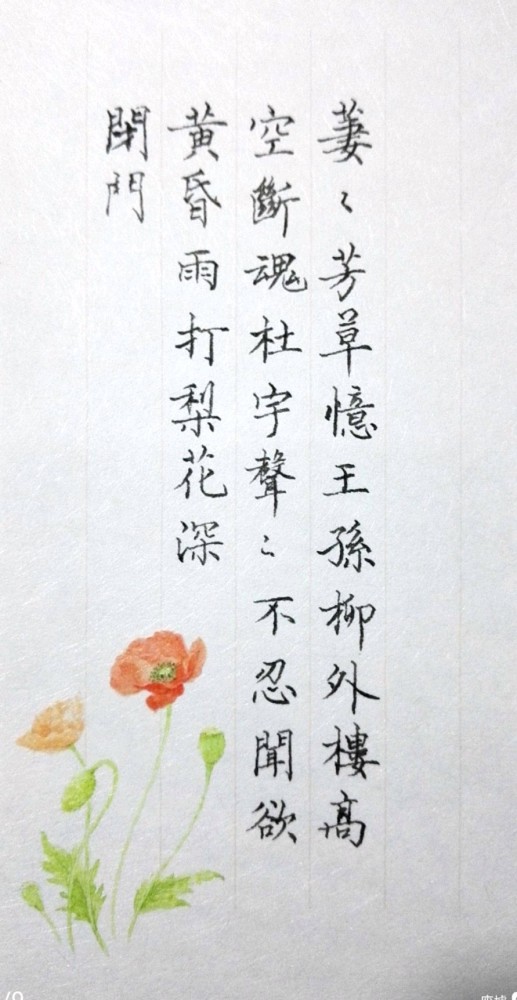 萋〻芳草憶王孫柳外樓高
空斷魂杜宇聲〻不忍聞欲
黃昏雨打梨花深
閉門